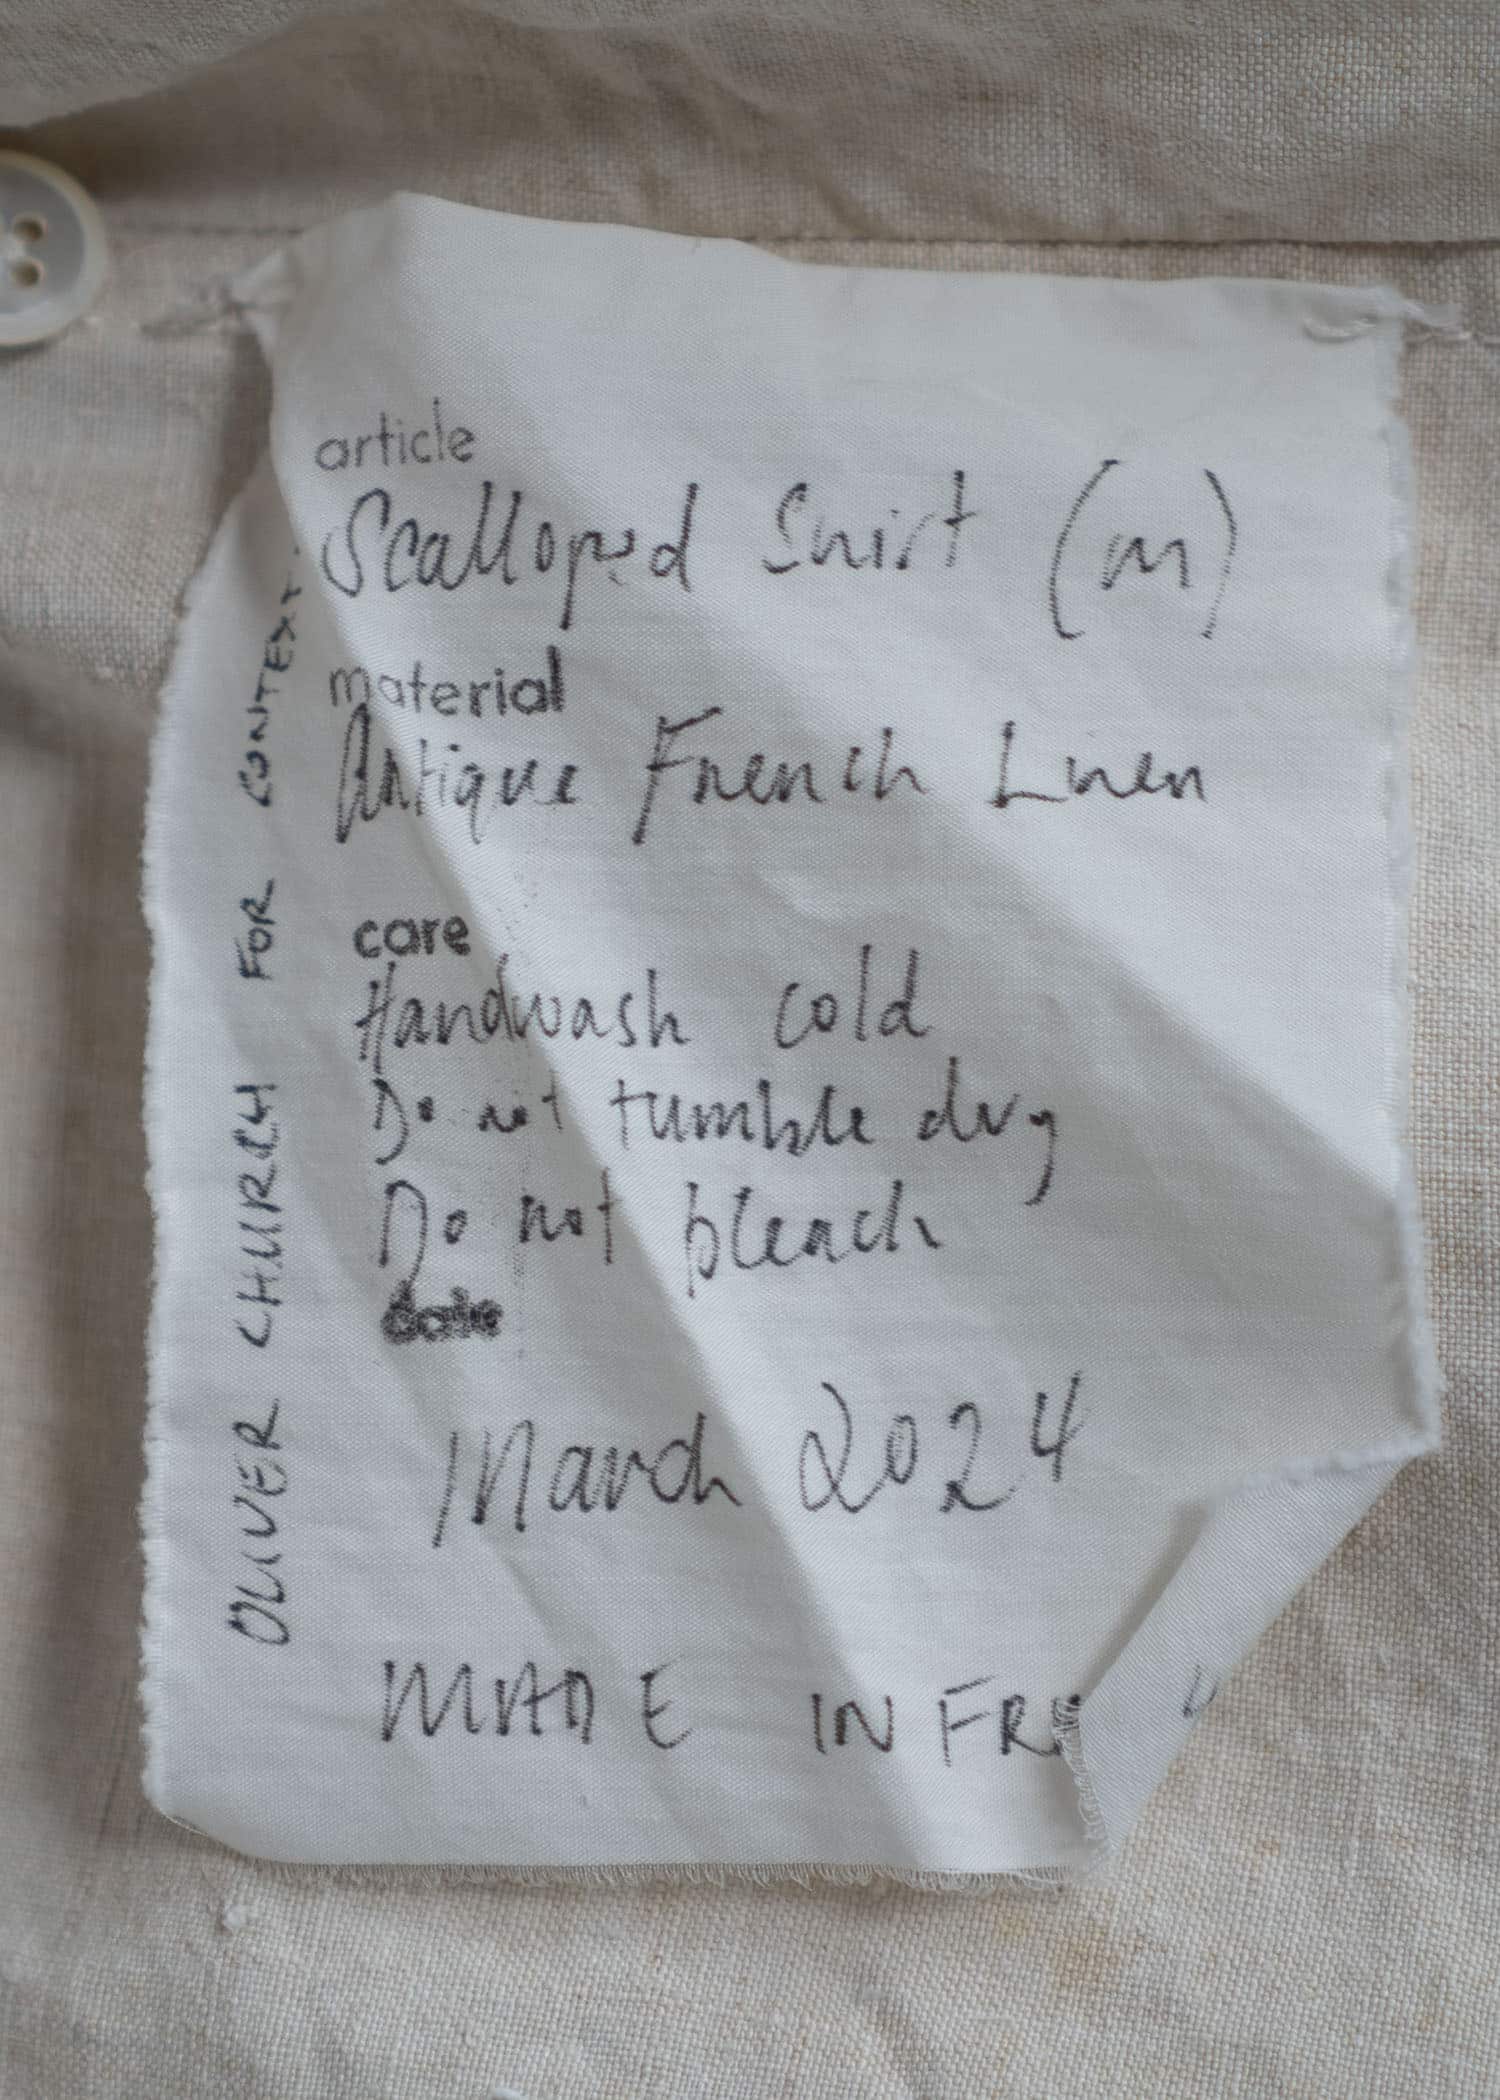 article
Scalloped Shirt (m)
material
Antique French Linen
care
Handwash cold
Do not tumble dry
Do not bleach
date
March 2024
MADE IN FRA
OLIVER CHURCH FOR CONTEXT.